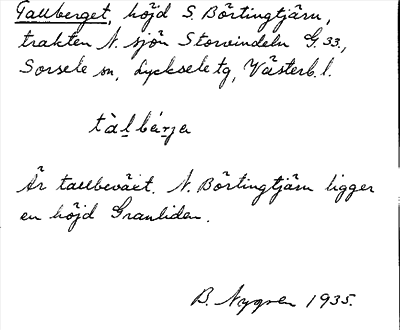 Tallberget, höjd S. Börtingtjärn,
trakten N. sjön Storvindeln G. 33,
Sorsele sn, Lycksele tg, Västerb. l.
tàl̲bár̲ja
Är tallbeväxt. N. Börtingtjärn ligger
en höjd Granliden.
B. Nygren 1935.